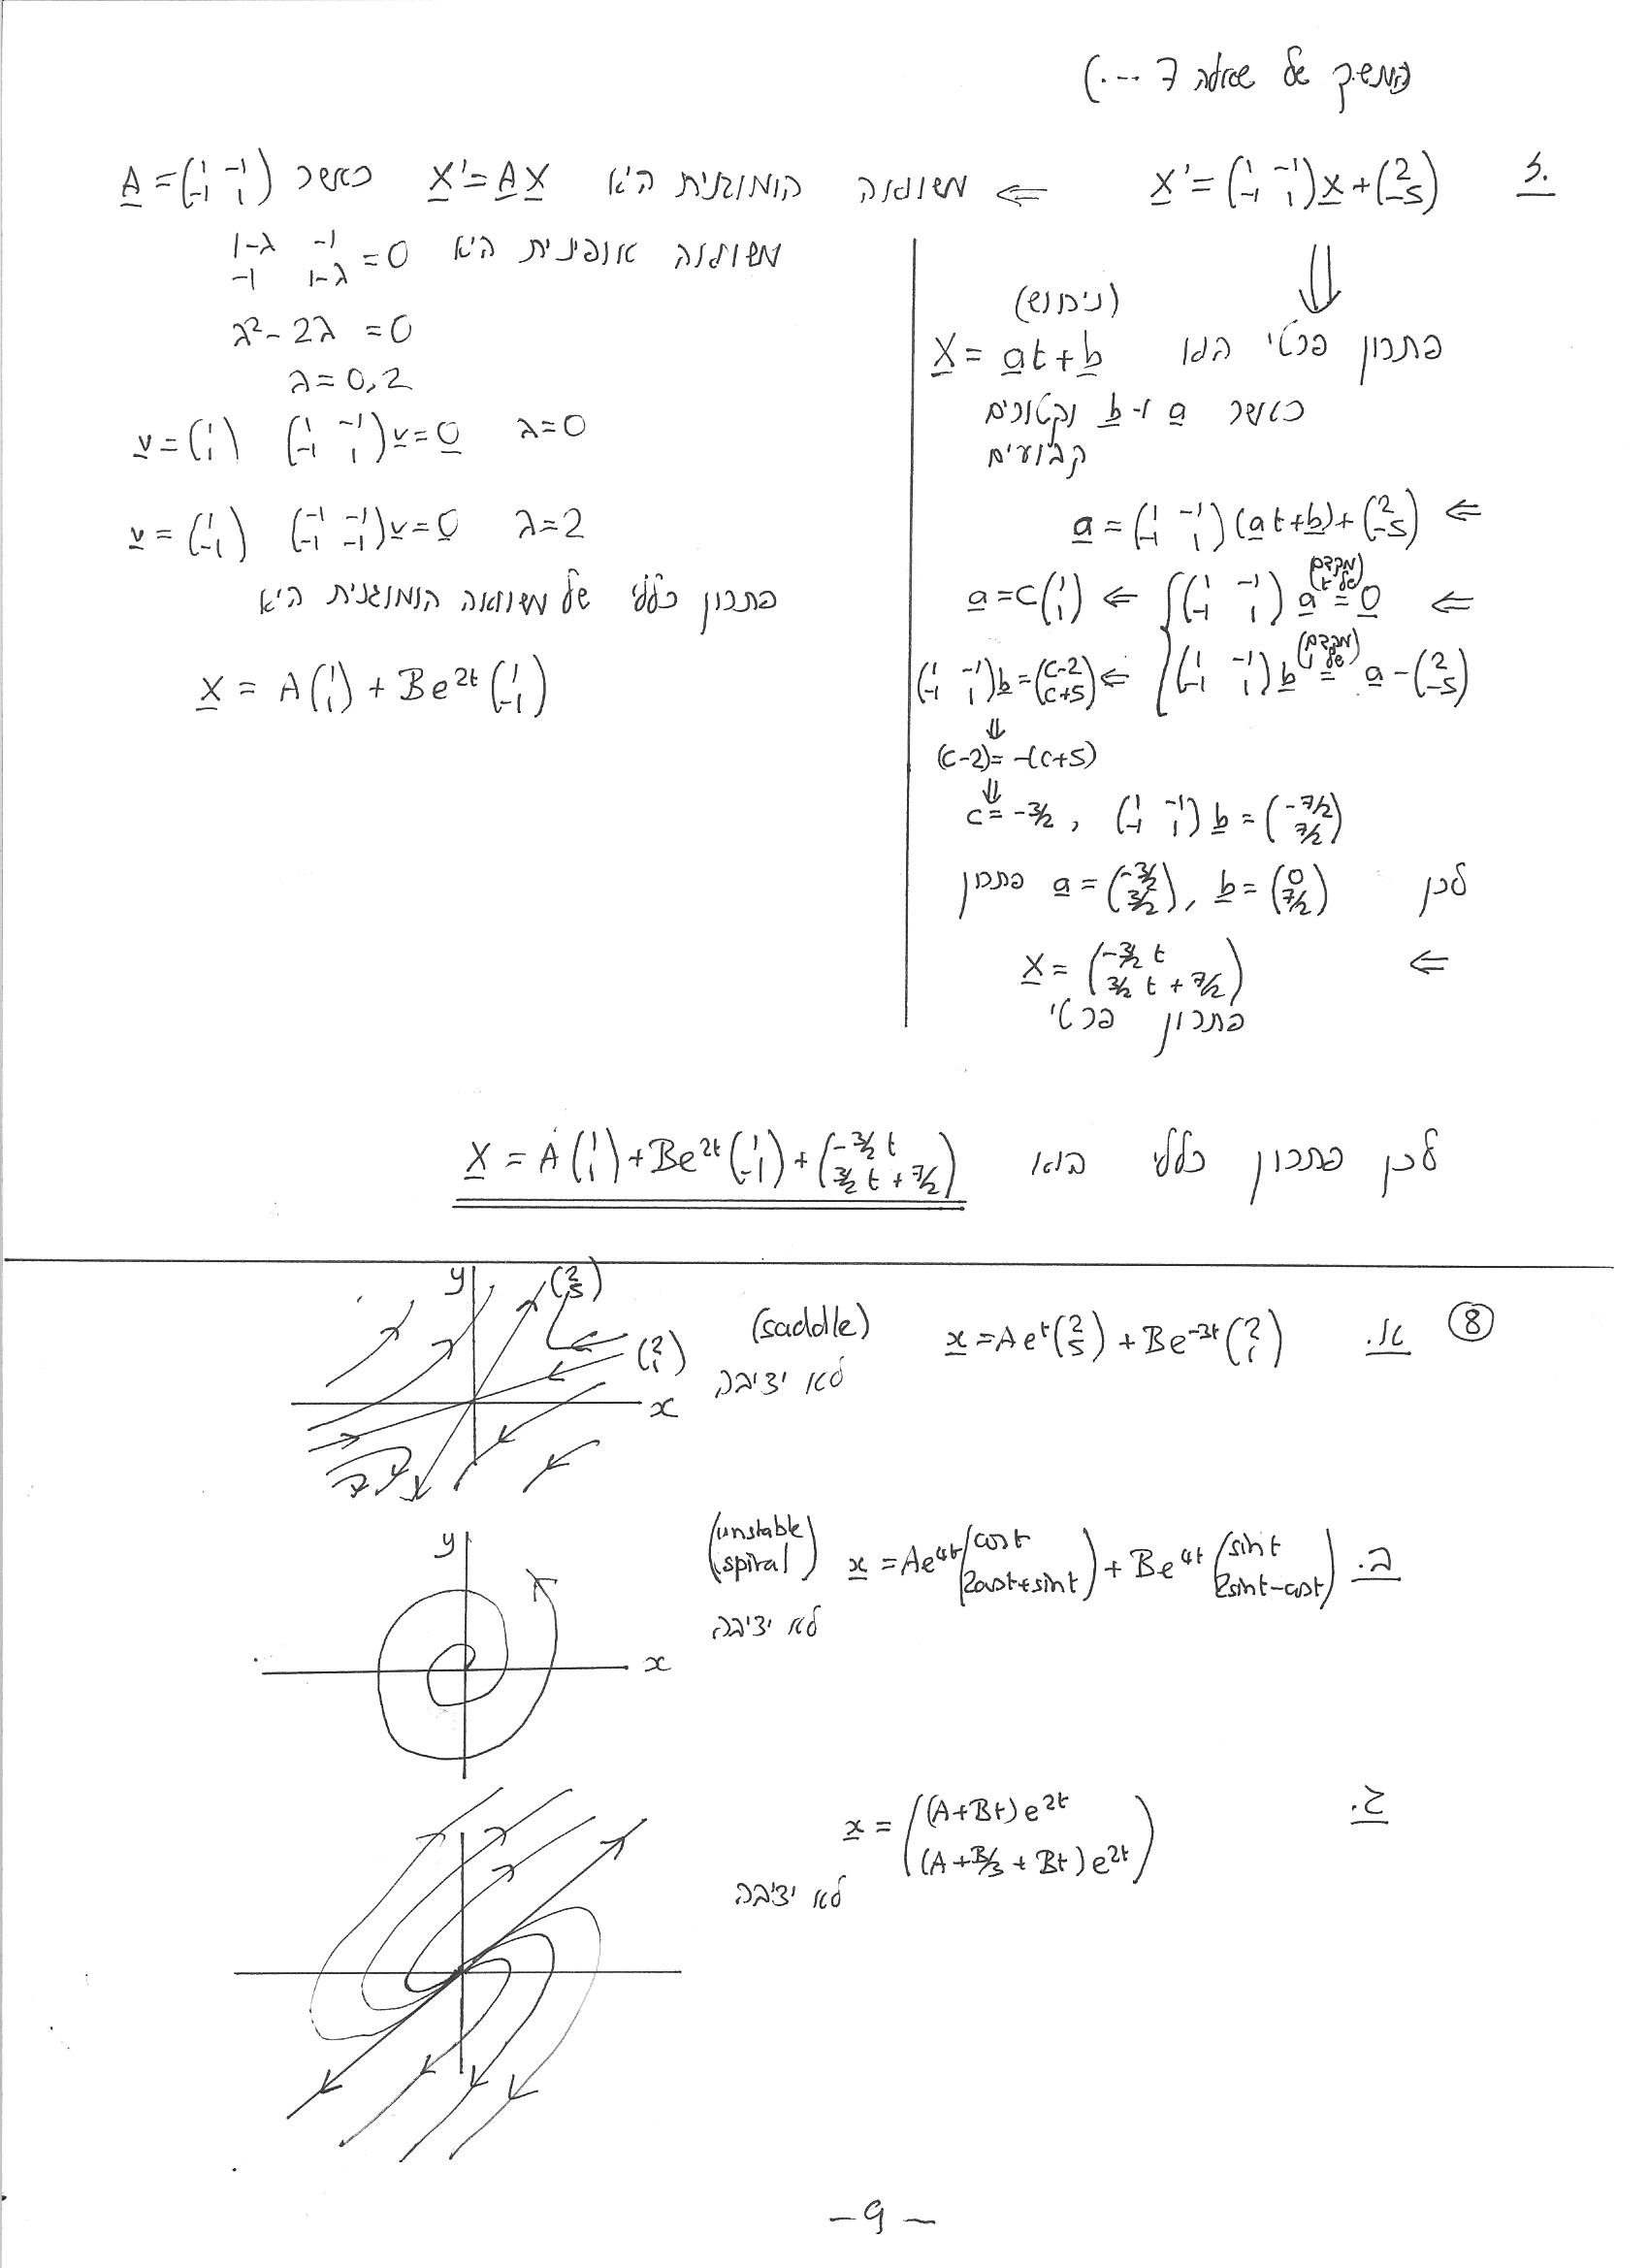 (המשך של שאלה 7 ...)
ז. X' = (1 -1; -1 1) X + (2; -5) ⇐ משוואה הומוגנית היא X' = A X כאשר A = (1 -1; -1 1)
משוואה אופינית היא
1-λ -1
-1 1-λ = 0
λ² - 2λ = 0
λ = 0, 2
λ=0 (1 -1; -1 1) v = 0 v = (1; 1)
λ=2 (-1 -1; -1 -1) v = 0 v = (1; -1)
פתרון כללי של משוואה הומוגנית היא
X = A (1; 1) + B e^{2t} (1; -1)
⇓
(ניחוש)
פתרון פרטי הוא X = at + b
כאשר a ו- b וקטורים
קבועים
⇐ a = (1 -1; -1 1)(at+b) + (2; -5)
⇐ { (1 -1; -1 1) a = 0 (מקדם של t) ⇐ a = c (1; 1)
(1 -1; -1 1) b = a - (2; -5) (מקדם של 1) ⇐ (1 -1; -1 1) b = (c-2; c+5)
⇓
(c-2) = -(c+5)
⇓
c = -3/2 , (1 -1; -1 1) b = (-7/2; 7/2)
לכן a = (-3/2; 3/2), b = (0; 7/2) פתרון
⇐ X = (-3/2 t; 3/2 t + 7/2)
פתרון פרטי
לכן פתרון כללי הוא X = A (1; 1) + B e^{2t} (1; -1) + (-3/2 t; 3/2 t + 7/2)
⑧ א. x = A e^t (2; 5) + B e^{-3t} (2; 1) (saddle)
לא יציבה
y
(2; 5)
(2; 1)
x
ב. x = A e^{4t} (cost; 2cost+sint) + B e^{4t} (sint; 2sint-cost) (unstable spiral)
לא יציבה
y
x
ג. x = ((A+Bt) e^{2t}; (A+B/3+Bt) e^{2t})
לא יציבה
- 9 -